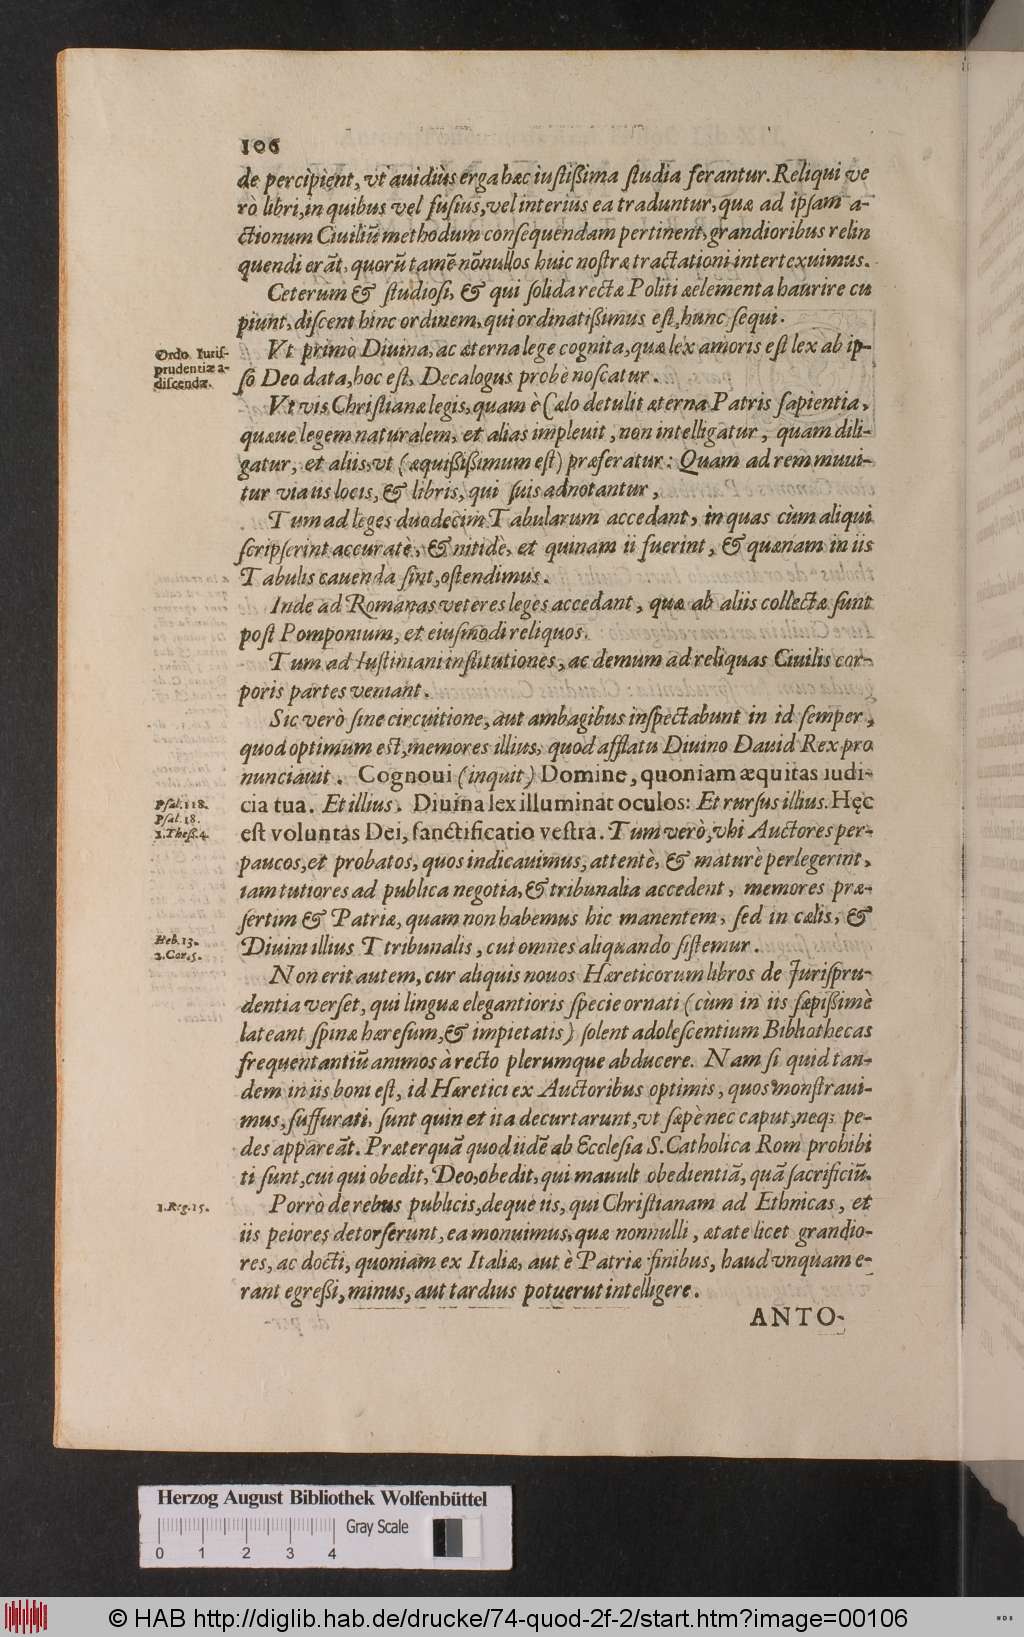 106
de percipient, vt auidiùs erga hæc iustißima studia ferantur. Reliqui ve
rò libri, in quibus vel fusius, vel interius ea traduntur, quæ ad ipsam a-
ctionum Ciuiliũ methodum consequendam pertinent, grandioribus relin
quendi erãt, quorũ tamẽ nõnullos huic nostræ tractationi intertexuimus.
Ceterùm & studiosi, & qui solida rectæ Politiæ elementa haurire cu
piunt, discent hinc ordinem, qui ordinatißimus est, hunc sequi.
Ordo Iuris-
prudentiæ a-
discendæ.
Vt primò Diuina, ac æterna lege cognita, quæ lex amoris est lex ab ip-
so Deo data, hoc est, Decalogus probè noscatur.
Vt vis Christianæ legis, quam è Cælo detulit æterna Patris sapientia,
quæue legem naturalem, et alias impleuit, non intelligatur, quam dili-
gatur, et aliis, vt (æquißißimum est) præferatur: Quam ad rem muui-
tur via iis locis, & libris, qui suis adnotantur,
Tum ad leges duodecim Tabularum accedant, in quas cùm aliqui
scripserint accuratè, & nitidè, et quinam ii fuerint, & quænam in iis
Tabulis cauenda sint, ostendimus.
Inde ad Romanas veteres leges accedant, quæ ab aliis collectæ sunt
post Pomponium, et eiusmodi reliquos.
Tum ad Iustiniani institutiones, ac demum ad reliquas Ciuilis cor-
poris partes veniant.
Sic verò sine circuitione, aut ambagibus inspectabunt in id semper,
quod optimum est, memores illius, quod afflatu Diuino Dauid Rex pro
nunciauit. Cognoui (inquit) Domine, quoniam æquitas iudi-
Psal. 118.
cia tua. Et illius. Diuina lex illuminat oculos: Et rursus illius. Hęc
Psal. 18.
1. Thess. 4.
est voluntas Dei, sanctificatio vestra. Tum verò, vbi Auctores per-
paucos, et probatos, quos indicauimus, attentè, & maturè perlegerint,
iam tutiores ad publica negotia, & tribunalia accedent, memores præ-
sertim & Patriæ, quam non habemus hic manentem, sed in cælis, &
Heb. 13.
2. Cor. 5.
Diuini illius Ttribunalis, cui omnes aliquando sistemur.
Non erit autem, cur aliquis nouos Hæreticorum libros de Jurispru-
dentia verset, qui linguæ elegantioris specie ornati (cùm in iis sæpißimè
lateant spinæ hæresum, & impietatis) solent adolescentium Bibliothecas
frequentantiũ animos à recto plerumque abducere. Nam si quid tan-
dem in iis boni est, id Hæretici ex Auctoribus optimis, quos monstraui-
mus, suffurati, sunt quin et ita decurtarunt, vt sæpè nec caput, neq; pe-
des appareãt. Præterquã quod iidẽ ab Ecclesia S. Catholica Rom prohibi
ti sunt, cui qui obedit, Deo, obedit, qui mauult obedientiã, quã sacrificiũ.
1. Reg. 15.
Porrò de rebus publicis, deque iis, qui Christianam ad Ethnicas, et
iis peiores detorserunt, ea monuimus, quæ nonnulli, ætate licet grandio-
res, ac docti, quoniam ex Italiæ, aut è Patriæ finibus, haud vnquam e-
rant egreßi, minus, aut tardius potuerut intelligere.
ANTO-
Herzog August Bibliothek Wolfenbüttel
Gray Scale
0 1 2 3 4
© HAB http://diglib.hab.de/drucke/74-quod-2f-2/start.htm?image=00106